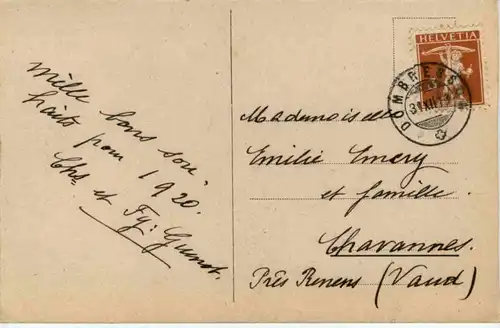 Mille bons sou-
haits pour 1920.
Chs et Fy: Guenot.
HELVETIA
DOMBRESSON
31.XII.19
Mademoiselle
Emilie Emery
et famille.
Chavannes.
Près Renens (Vaud)